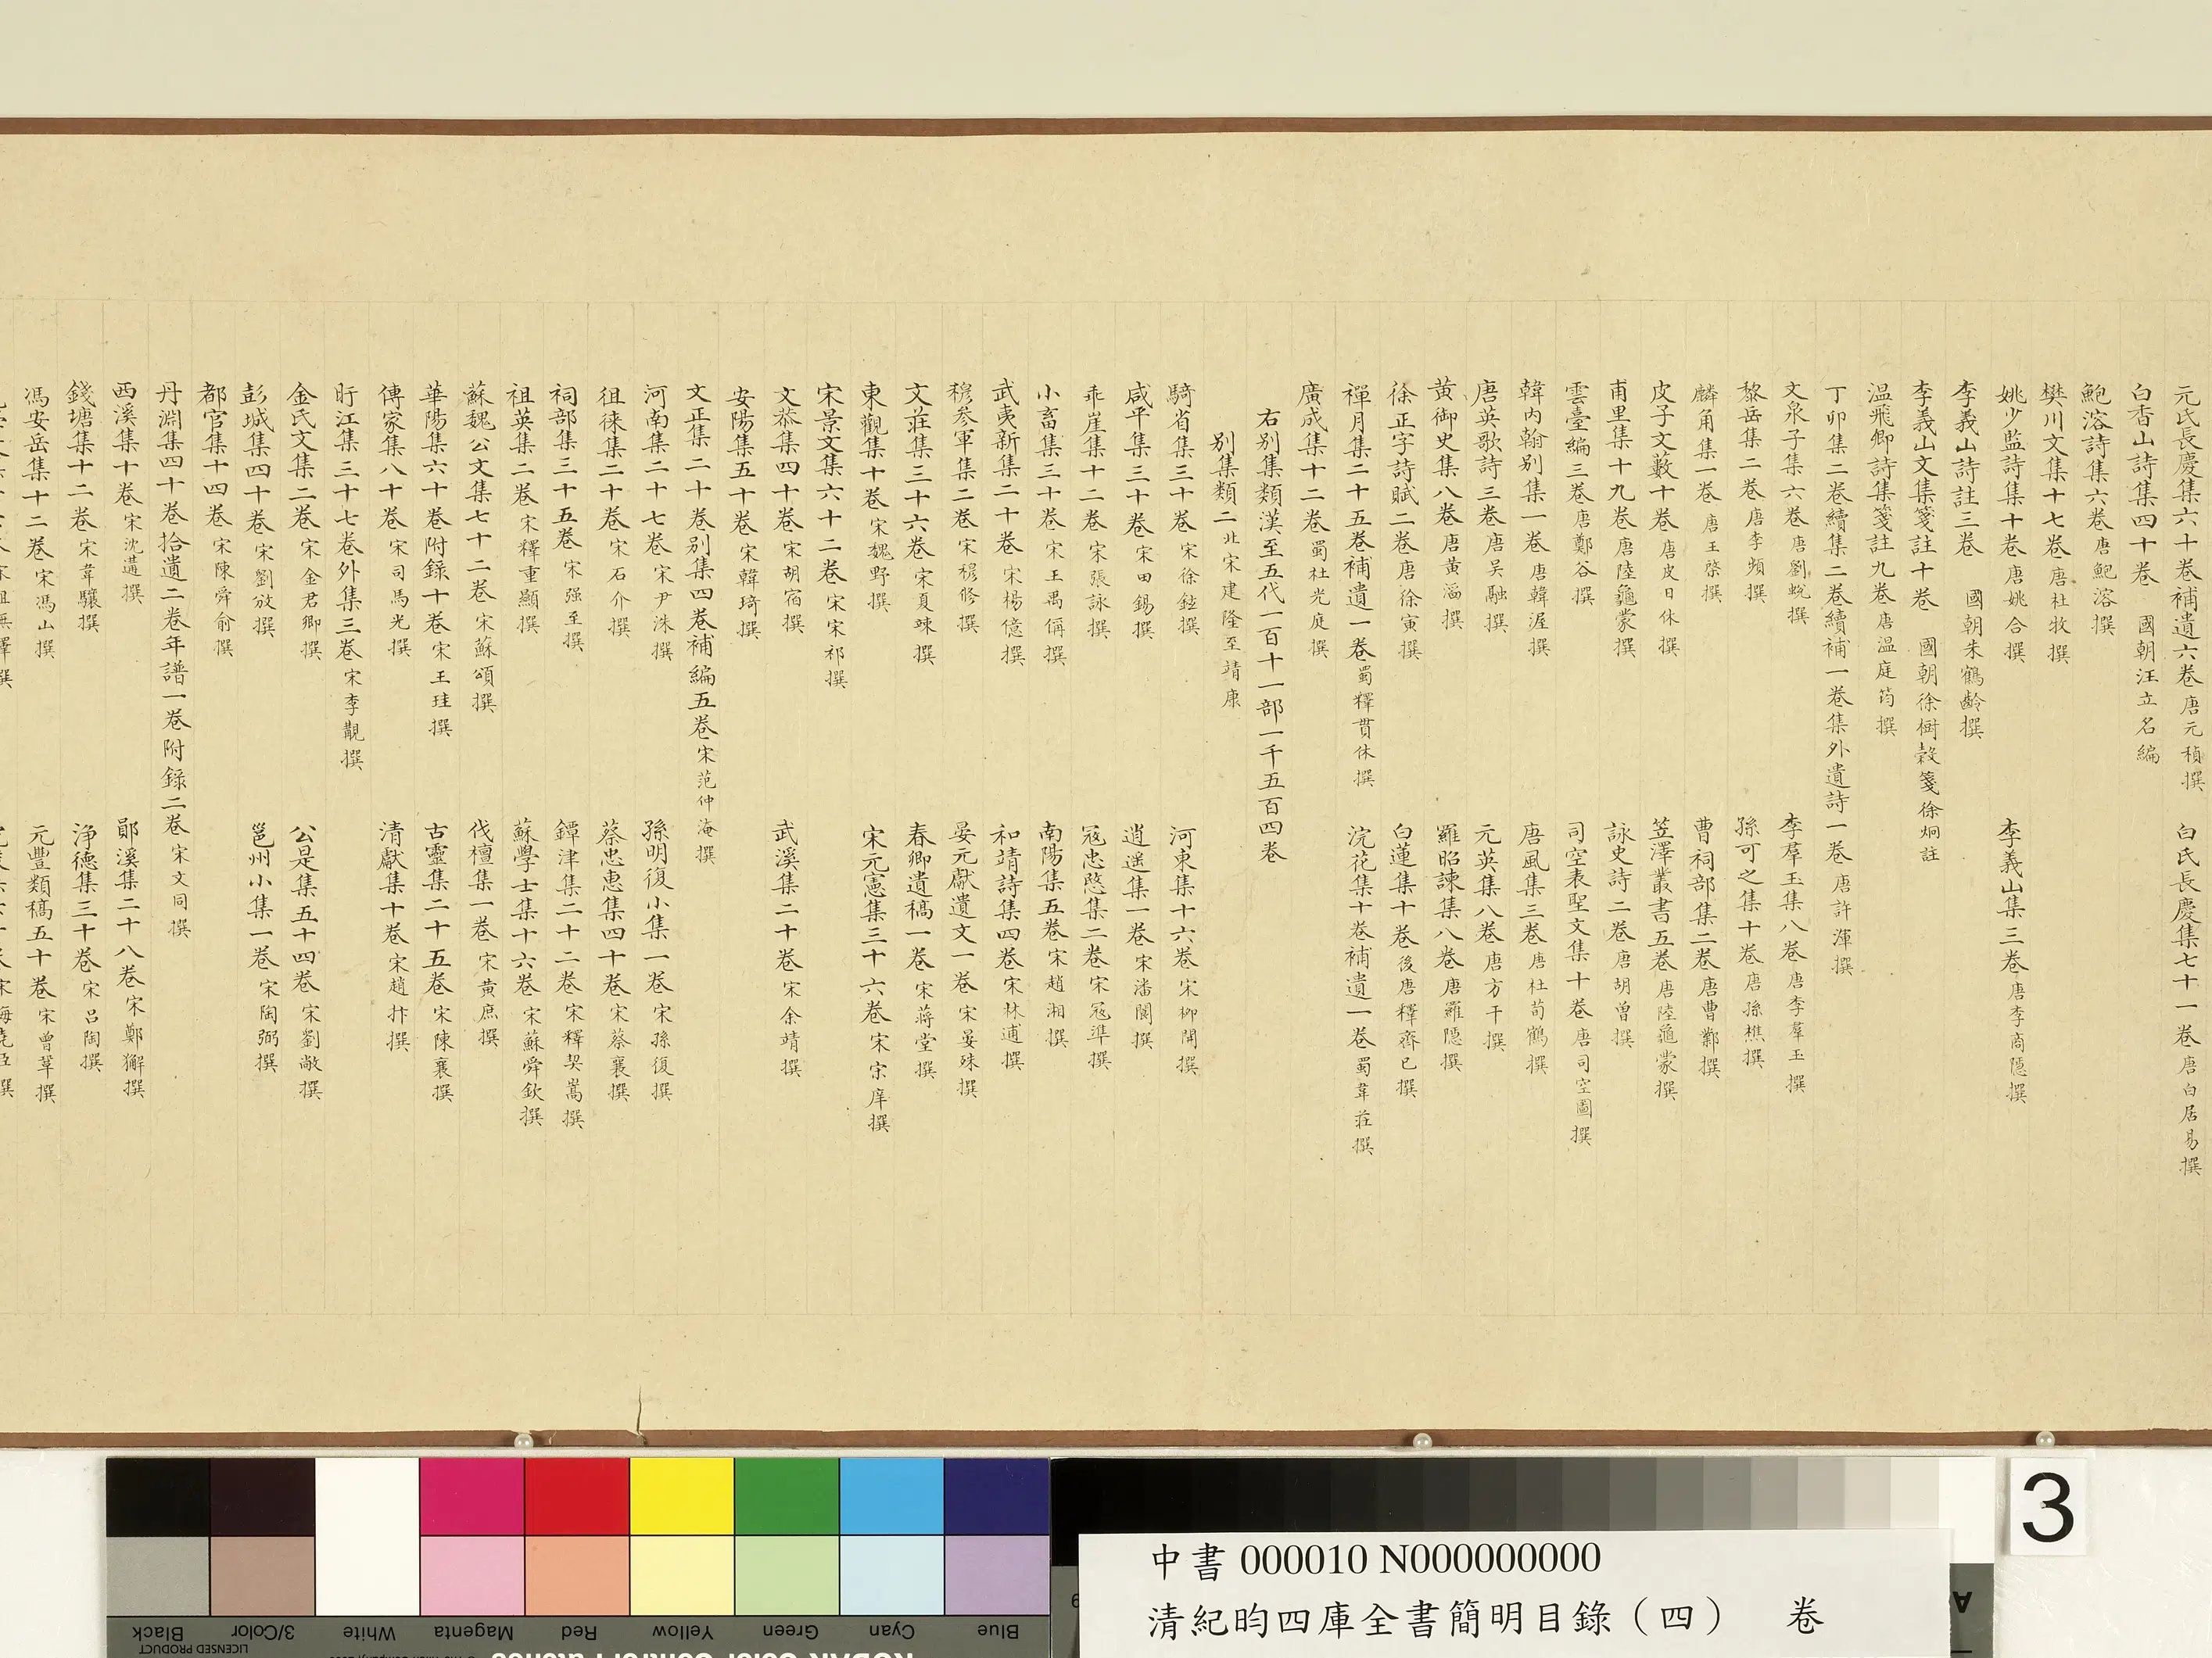 元氏長慶集六十卷補遺六卷唐元稹撰 白氏長慶集七十一卷唐白居易撰
白香山詩集四十卷 國朝汪立名編
鮑溶詩集六卷唐鮑溶撰
樊川文集十七卷唐杜牧撰
姚少監詩集十卷唐姚合撰 李義山集三卷唐李商隱撰
李義山詩註三卷 國朝朱鶴齡撰
李義山文集箋註十卷 國朝徐樹穀箋徐炯註
温飛卿詩集箋註九卷唐温庭筠撰
丁卯集二卷續集二卷續補一卷集外遺詩一卷唐許渾撰
文泉子集六卷唐劉蛻撰 李羣玉集八卷唐李羣玉撰
黎岳集二卷唐李頻撰 孫可之集十卷唐孫樵撰
麟角集一卷唐王棨撰 曹祠部集二卷唐曹鄴撰
皮子文藪十卷唐皮日休撰 笠澤叢書五卷唐陸龜蒙撰
甫里集十九卷唐陸龜蒙撰 詠史詩二卷唐胡曾撰
雲臺編三卷唐鄭谷撰 司空表聖文集十卷唐司空圖撰
韓內翰别集一卷唐韓渥撰 唐風集三卷唐杜荀鶴撰
唐英歌詩三卷唐吳融撰 元英集八卷唐方干撰
黃御史集八卷唐黃滔撰 羅昭諫集八卷唐羅隱撰
徐正字詩賦二卷唐徐寅撰 白蓮集十卷後唐釋齊已撰
禪月集二十五卷補遺一卷蜀釋貫休撰 浣花集十卷補遺一卷蜀韋莊撰
廣成集十二卷蜀杜光庭撰
右别集類漢至五代一百十一部一千五百四卷
别集類二北宋建隆至靖康
騎省集三十卷宋徐鉉撰 河東集十六卷宋柳開撰
咸平集三十卷宋田錫撰 逍遥集一卷宋潘閬撰
乖崖集十二卷宋張詠撰 寇忠愍集二卷宋寇準撰
小畜集三十卷宋王禹偁撰 南陽集五卷宋趙湘撰
武夷新集二十卷宋楊億撰 和靖詩集四卷宋林逋撰
穆參軍集二卷宋穆修撰 晏元獻遺文一卷宋晏殊撰
文莊集三十六卷宋夏竦撰 春卿遺稿一卷宋蔣堂撰
東觀集十卷宋魏野撰 宋元憲集三十六卷宋宋庠撰
宋景文集六十二卷宋宋祁撰
文恭集四十卷宋胡宿撰 武溪集二十卷宋余靖撰
安陽集五十卷宋韓琦撰
文正集二十卷别集四卷補編五卷宋范仲淹撰
河南集二十七卷宋尹洙撰 孫明復小集一卷宋孫復撰
徂徠集二十卷宋石介撰 蔡忠惠集四十卷宋蔡襄撰
祠部集三十五卷宋强至撰 鐔津集二十二卷宋釋契嵩撰
祖英集二卷宋釋重顯撰 蘇學士集十六卷宋蘇舜欽撰
蘇魏公文集七十二卷宋蘇頌撰 伐檀集一卷宋黃庶撰
華陽集六十卷附録十卷宋王珪撰 古靈集二十五卷宋陳襄撰
傳家集八十卷宋司馬光撰 清獻集十卷宋趙抃撰
盱江集三十七卷外集三卷宋李覯撰
金氏文集二卷宋金君卿撰 公是集五十四卷宋劉敞撰
彭城集四十卷宋劉攽撰 邕州小集一卷宋陶弼撰
都官集十四卷宋陳舜俞撰
丹淵集四十卷拾遺二卷年譜一卷附錄二卷宋文同撰
西溪集十卷宋沈遘撰 鄖溪集二十八卷宋鄭獬撰
錢塘集十二卷宋韋驤撰 淨德集三十卷宋呂陶撰
馮安岳集十二卷宋馮山撰 元豐類稿五十卷宋曾鞏撰
Black
3/Color
White
Magenta
Red
Yellow
Green
Cyan
Blue
LICENSED PRODUCT
3
中書 000010 N000000000
清紀昀四庫全書簡明目錄（四） 卷
A